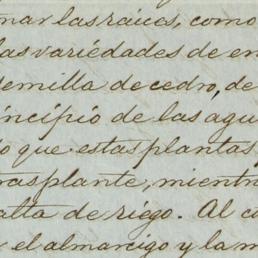 mar las raices, como
las variedades de en
semilla de cedro, de
rincipio de las agu
o que estas plantas,
trasplante, mientra
alta de riego. Al co
el almarcigo y la m